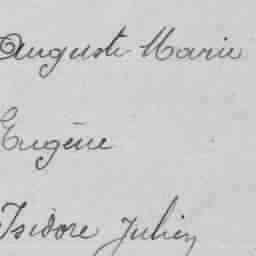 Auguste Marie
Eugène
Isidore Julien